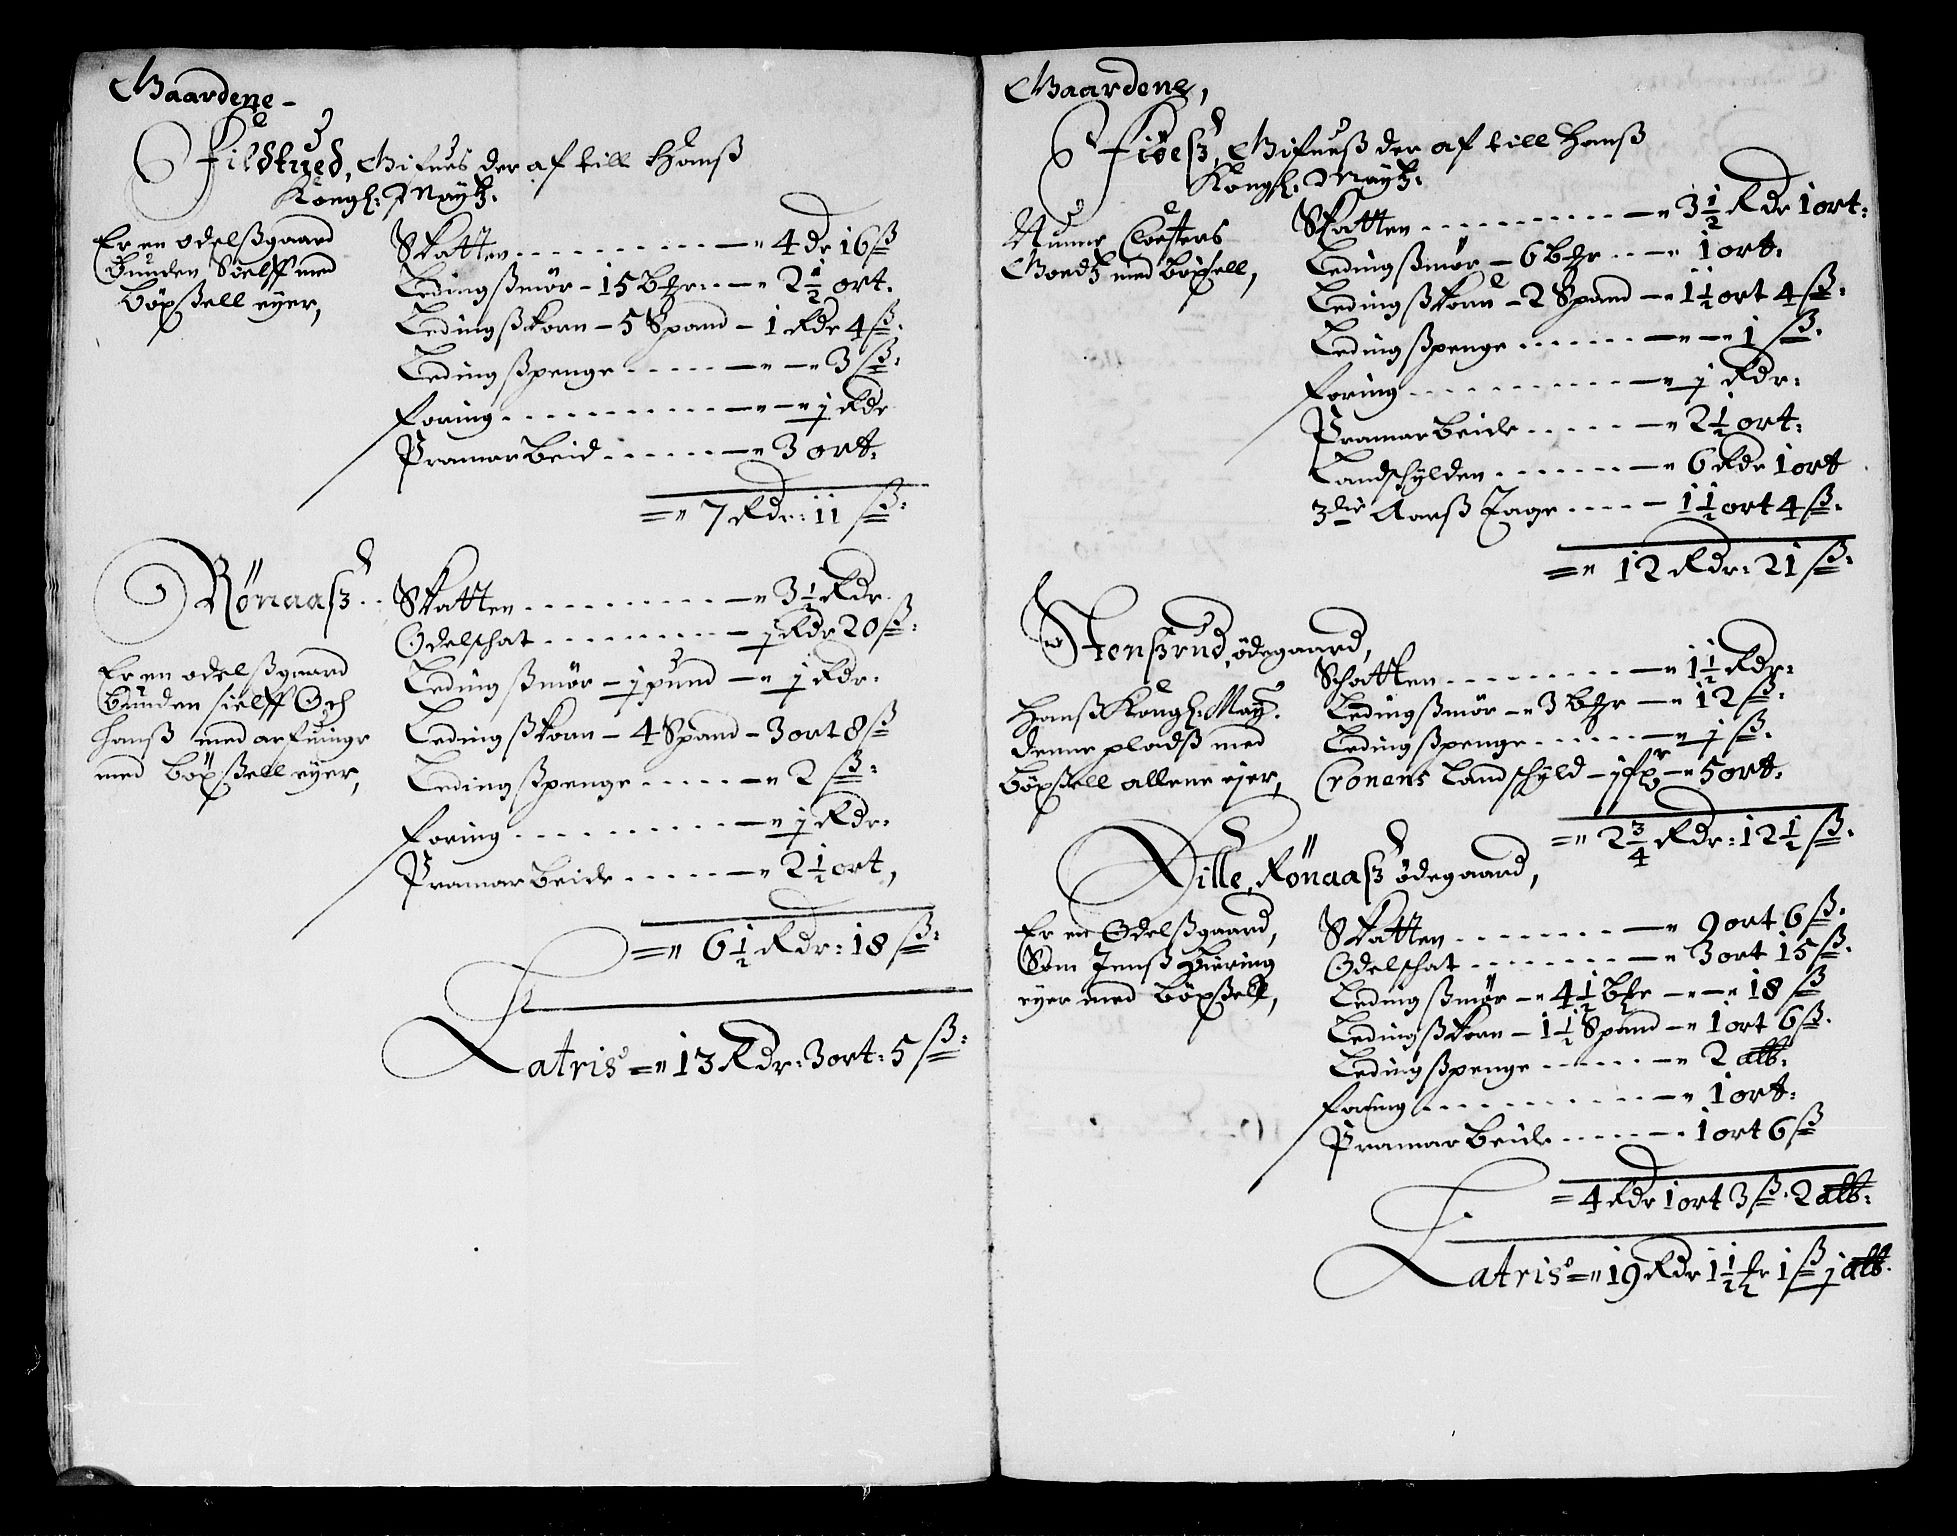 Gaardene -
Fildtued, Gifues der af till Hanß
Kongl: Maytz.
Er en odelßgaard
Bunden Sielff med
böxßell eyer,
Skatten - - - 4 dr 16 ß
Ledingßmör - 15 bßr: - 2 1/2 ort.
Ledingßkorn - 5 Spand - 1 Rdr 4 ß.
Ledingßpenge - - - 3 ß.
Foring - - - j Rdr
Pramarbeid - - - 3 ort.
= 7 Rdr: 11 ß.
Rönaaß - -
Er en odelßgaard
Bunden sielff Och
hanß med arfuinge
med böxßell eyer,
Skatten - - - 3 1/2 Rdr.
Odelschat - - - j Rdr 20 ß.
Ledingßmör - j pund - j Rdr.
Ledingßkorn - 4 Spand - 3 ort 8 ß
Ledingßpenge - - - 2 ß.
Foring - - - j Rdr.
Pramarbeide - - - 2 1/2 ort,
= 6 1/2 Rdr: 18 ß.
Latris = 13 Rdr: 3 ort: 5 ß.
Gaardene,
Fieeß, Gifueß der af till Hanß
Kongl: Maytz.
Nunne Closters
Goedtz med böxsell,
Skatten - - - 3 1/2 Rdr 1 ort.
Ledingßmör - 6 bßr - - 1 ort.
Ledingßkorn - 2 Spand - 1 1/2 ort 4 ß.
Ledingßpenge - - - 1 ß.
Foring - - - j Rdr:
Pramarbeide - - - 2 1/2 ort:
Landschylden - - - 6 Rdr 1 ort
3die Aarß Tage - - - 1 1/2 ort 4 ß.
= 12 Rdr: 21 ß.
Stenßrud, ödegaard,
Hanß Kongl: May.
denne pladß med
böxßell allene ejer,
Schatten - - - 1 1/2 Rdr.
Ledingßmör - 3 bßr - 12 ß.
Ledingßpenge - - - j ß.
Cronens Landschyld - j - 5 ort.
= 2 3/4 Rdr: 12 1/2 ß.
Lille Rönaaß ödegaard,
Er en Odelßgaard,
Som Jenß Biering
eyer med böxßell,
Skatten - - - 9 ort 6 ß.
Odelschat - - - 3 ort 15 ß.
Ledingßmör - 4 1/2 bßr - - 18 ß
Ledingßkorn - 1 1/2 Spand - 1 ort 6 ß.
Ledingßpenge - - - 2 alb.
Foring - - - 1 ort.
Pramarbeide - - - 1 ort 6 ß
= 4 Rdr 1 ort 3 ß. 2 alb.
Latris = 19 Rdr 1 1/2 1 ß j alb.